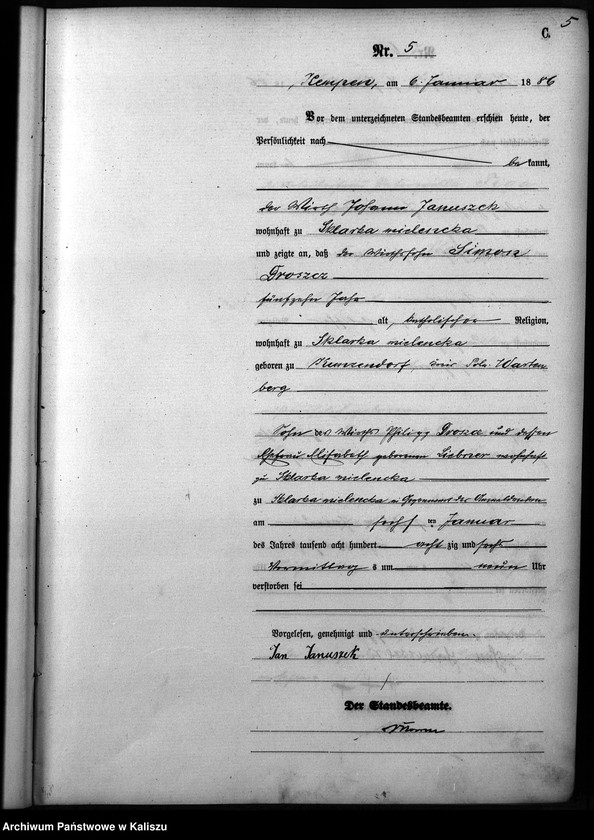 5
C.
Nr. 5
Kempen, am 6. Januar 1886
Vor dem unterzeichneten Standesbeamten erschien heute, der
Persönlichkeit nach
bekannt,
der Wirth Johann Januszek
wohnhaft zu Sklarka mielencka
und zeigte an, daß der Wirthssohn Simon
Droszcz
fünfzehn Jahr
alt, katholischer Religion,
wohnhaft zu Sklarka mielencka
geboren zu Kunzendorf Kreis Poln. Warten
berg
Sohn des Wirths Philipp und dessen
Ehefrau Elisabeth geborenen wohnhaft
zu Sklarka mielencka
zu Sklarka mielencka in Gegenwart des
am sechsten Januar
des Jahres tausend acht hundert achtzig und sechs
Vormittags um neun Uhr
verstorben sei
Vorgelesen, genehmigt und unterschrieben.
Jan Januszek
Der Standesbeamte.
Archiwum Państwowe w Kaliszu